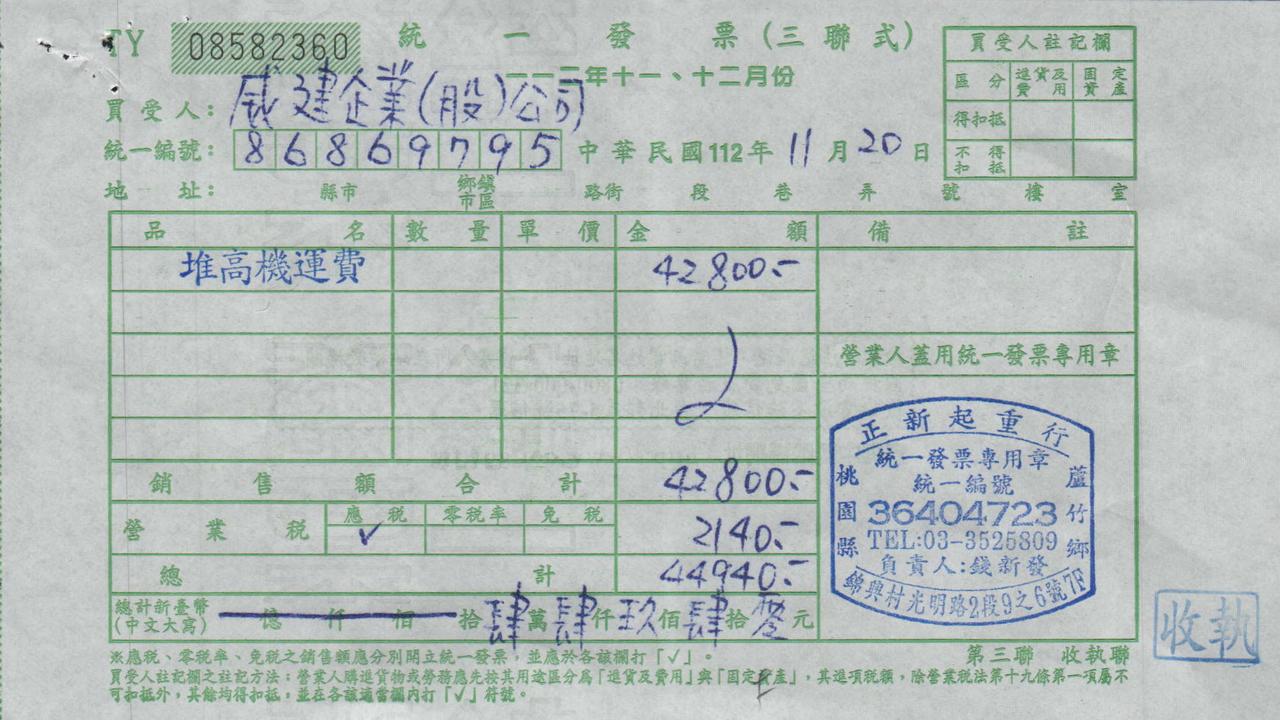 TY 08582360 統一發票(三聯式)
一一二年十一、十二月份
買受人註記欄
區分 進貨及費用 固定資產
得扣抵
不得扣抵
買受人：威建企業(股)公司
統一編號：86869795 中華民國112年11月20日
地址： 縣市 鄉鎮市區 路街 段 巷 弄 號 樓 室
品名 數量 單價 金額 備註
堆高機運費 42800.-
營業人蓋用統一發票專用章
銷售額合計 42800.-
營業稅 應稅 ✓ 零稅率 免稅 2140.-
總計 44940.-
總計新臺幣(中文大寫) 億 仟 佰 拾肆萬肆仟玖佰肆拾零元
正新起重行
統一發票專用章
統一編號
36404723
TEL:03-3525809
負責人:錢新發
桃園縣 蘆竹鄉
錦興村光明路2段9之6號7F
收執
第三聯 收執聯
※應稅、零稅率、免稅之銷售額應分別開立統一發票，並應於各該欄打「√」。
買受人註記欄之註記方法：營業人購進貨物或勞務應先按其用途區分為「進貨及費用」與「固定資產」，其進項稅額，除營業稅法第十九條第一項屬不
可扣抵外，其餘均得扣抵，並在各該適當欄內打「√」符號。